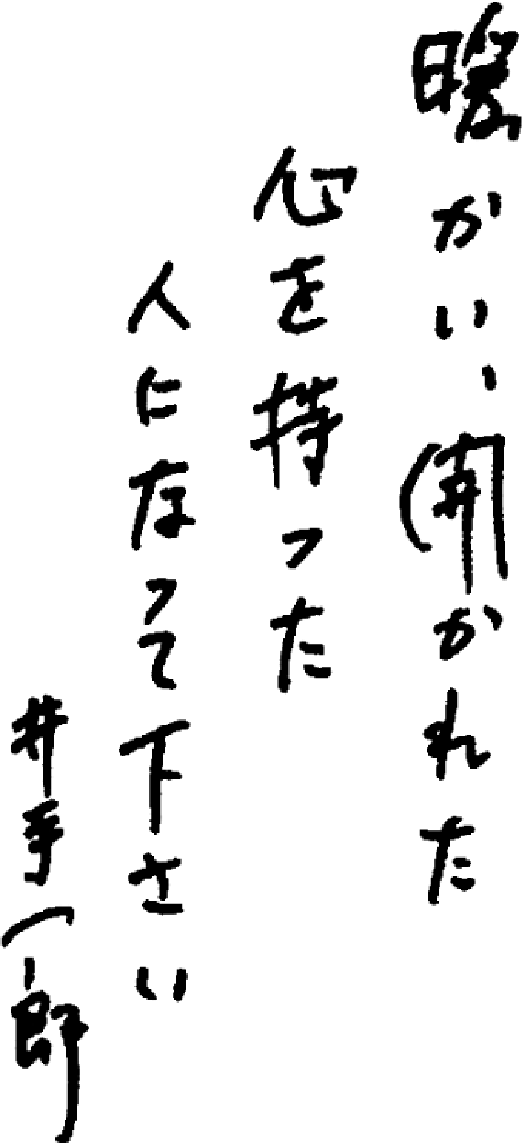 暖かい、開かれた
心を持った
人になって下さい
井手一郎